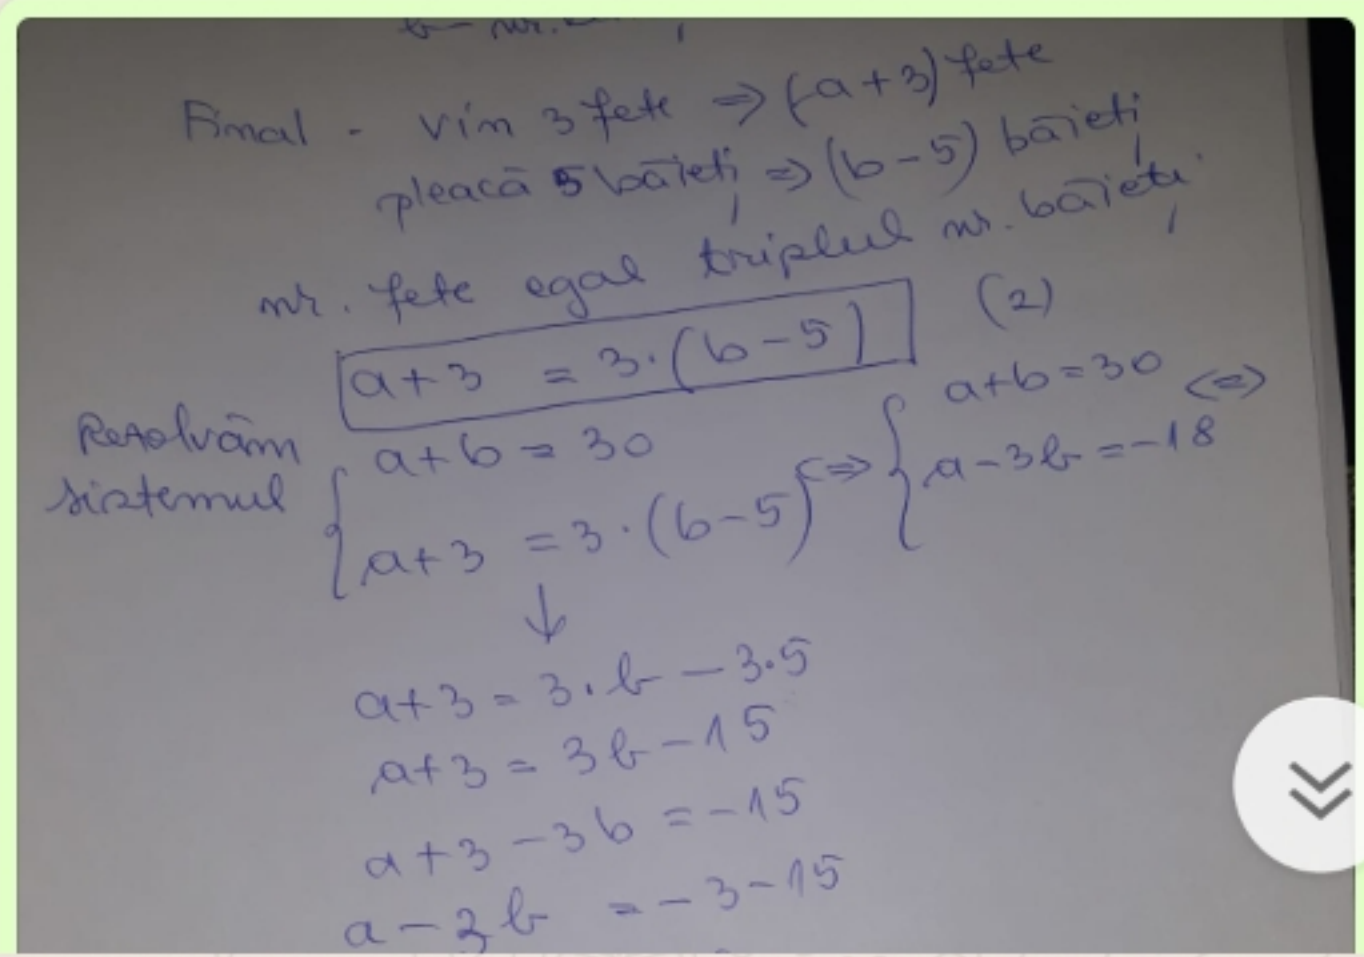 b- nr.
Final - vin 3 fete => (a+3) fete
pleacă 5 băieți => (b-5) băieți
nr. fete egal triplul nr. băieți
a+3 = 3·(b-5) (2)
Rezolvăm
sistemul
{ a+b = 30
a+3 = 3·(b-5) <=> { a+b=30
a-3b=-18 <=>
↓
a+3 = 3·b - 3·5
a+3 = 3b - 15
a+3 - 3b = -15
a - 3b = -3-15